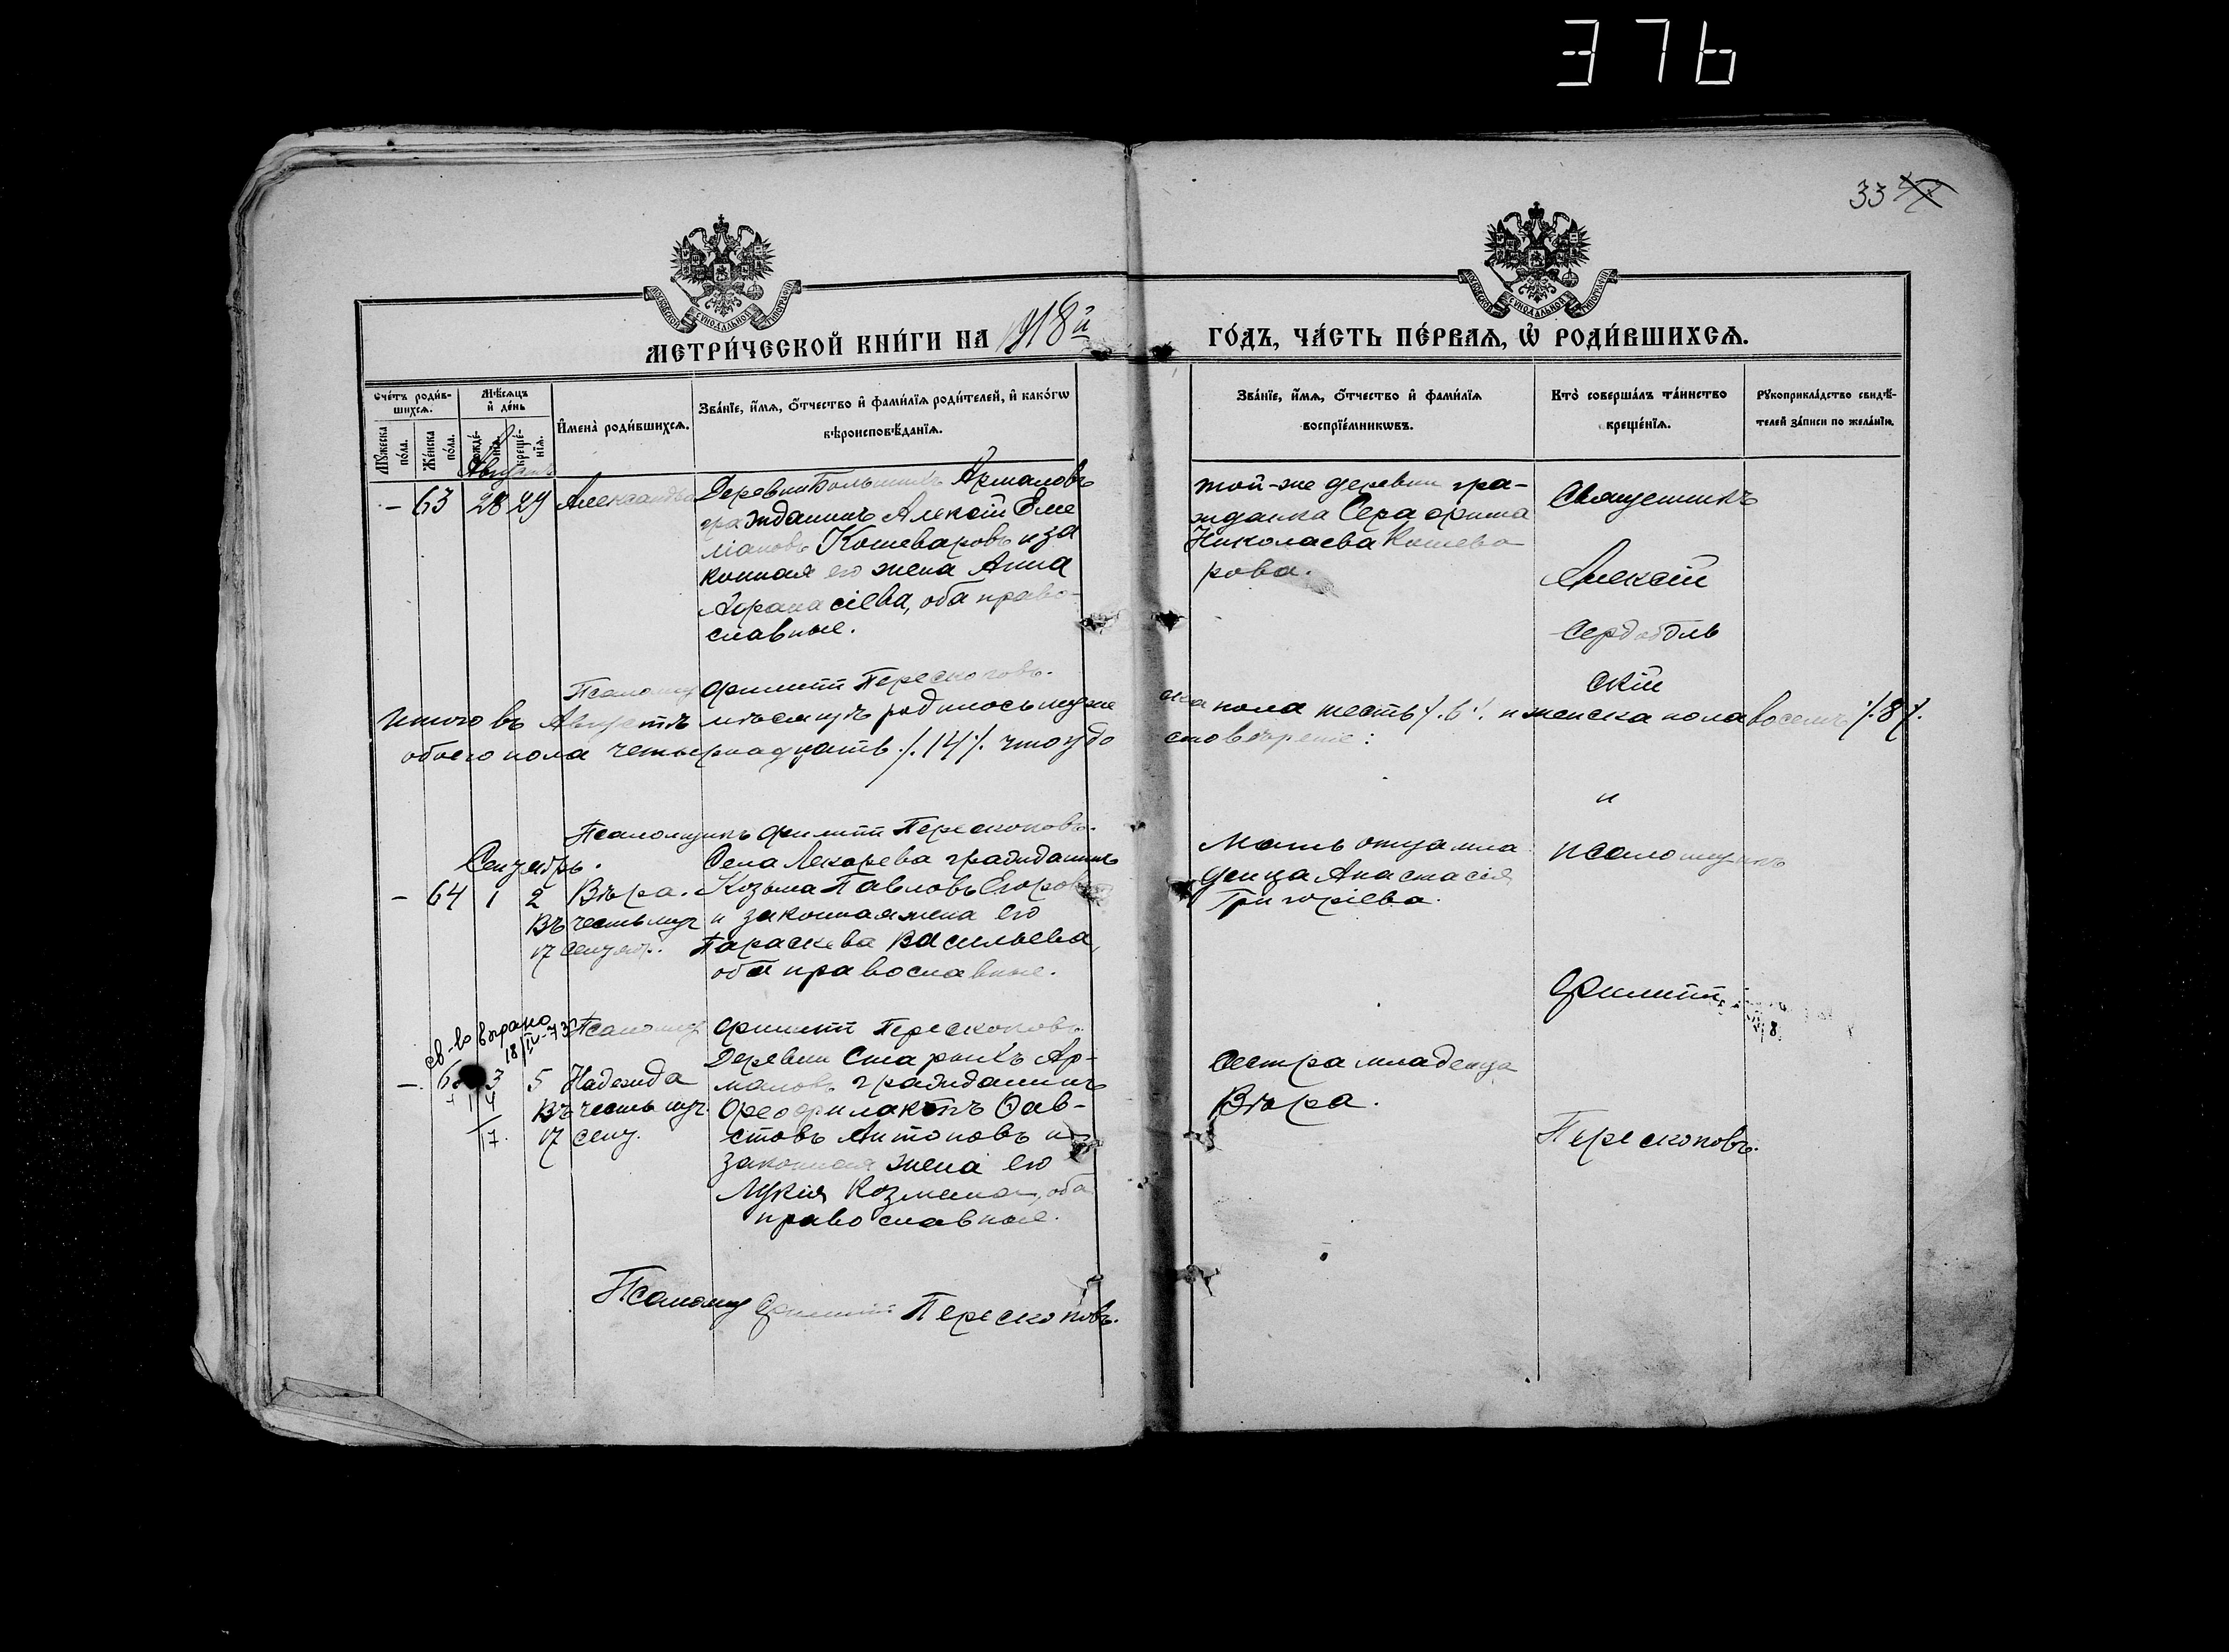 376
33
МЕТРИ́ЧЕСКОЙ КНИ́ГИ НА 1918й
ГО́ДЪ, ЧА́СТЬ ПЕ́РВАЯ, Ѡ҆ РОДИ́ВШИХСЯ.
Сче́тъ роди́в-
шихся.
Мѣ́сяцъ
и҆ де́нь
Му́жеска
по́ла.
Же́нска
по́ла.
рожде́-
нїя.
креще́-
нїя.
И҆мена̀ роди́вшихся.
Зва́нїе, и҆́мя, ѻ҆́тчество и҆ фами́лїя роди́телей, и҆ како́гѡ
вѣроисповѣ́данїя.
Зва́нїе, и҆́мя, ѻ҆́тчество и҆ фами́лїя
воспрїе́мникѡвъ.
Кто̀ соверша́лъ та́инство
креще́нїя.
Рꙋкоприкла́дство свидѣ́-
телей за́писи по жела́нїю.
Августъ
– 63 28 29 Александра
Деревни Большихъ Армаловъ
гражданинъ Алексій Еме
ліановъ Кошеваровъ и за
конная его жена Анна
Афанасіева, оба право-
славные.
той-же деревни гра-
жданка Серафима
Николаева Кошева
рова.
Священникъ
Алексій
Сердобль
скій
Псаломщ Филиппъ Перескоковъ.
Итого въ Августѣ мѣсяцѣ родилось муже
ска пола шесть ./.6./. и женска пола восемь ./.8./.
обоего пола четырнадцать ./.14./. что удо
стовѣряемъ:
и
Псаломщикъ Филиппъ Перескоковъ.
Сентябрь.
– 64 1 2 Вѣра.
Въ честь муч
17 Сентяр.
Села Лекарева гражданинъ
Козьма Павловъ Егоровъ
и законная жена его
Параскева Васильева,
оба православные.
Мать отца мла
денца Анастасія
Григоріева.
псаломщикъ
Филиппъ
Псаломщ Филиппъ Перескоковъ
св-во выдано
18/IV-73
3 5 Надежда
Въ честь муч.
17 Сент.
Деревни Старыхъ Ар-
маловъ гражданинъ
Феофилактъ Ѳав-
стовъ Антоновъ и
законная жена его
Лукія Козмина, оба
православные.
Сестра младенца
Вѣра.
Перескоковъ.
Псаломщ Филиппъ Перескоковъ.